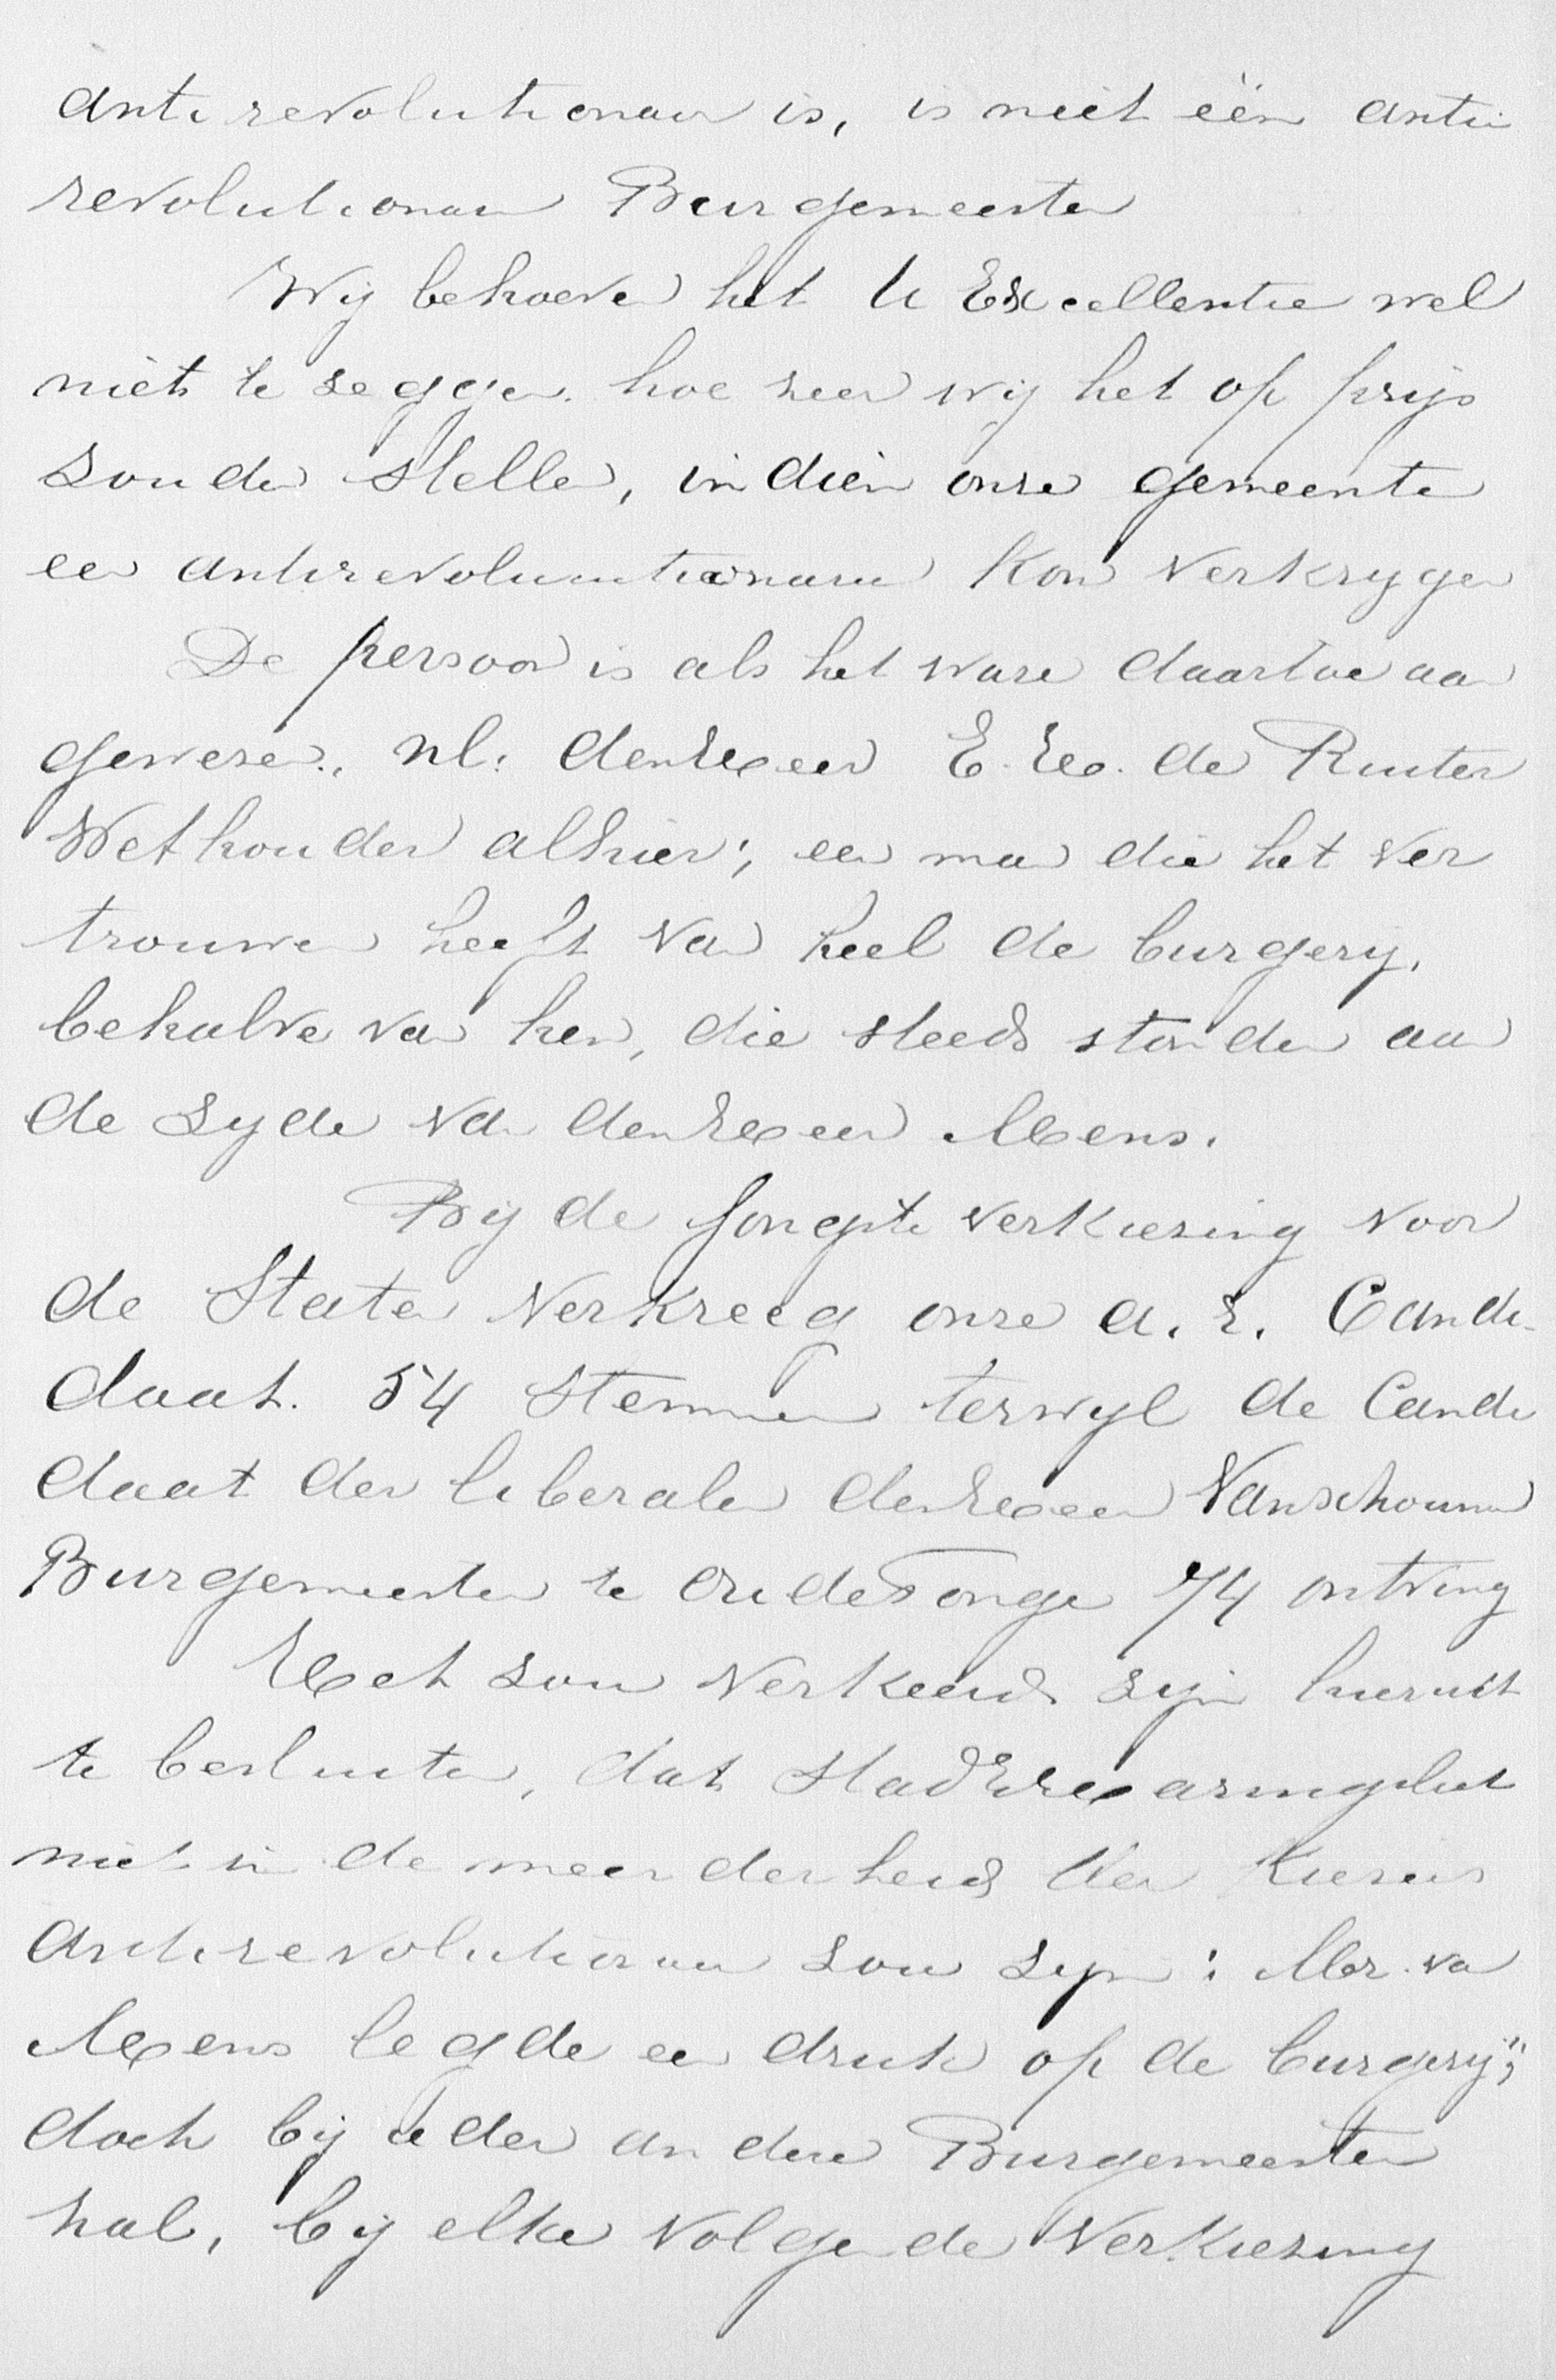 antirevolutionair is, is niet één anti
revolutionair Burgemeester
Wij behoeven het U Excellentie wel
niet te zeggen. hoe zeer wij het op prijs
zouden stellen, indien onze gemeente
een antirevoluutionair kon verkrygen
De persoon is als het ware daartoe aan
gewezen., nl. den Heer E. H. de Ruiter
Wethouder alhier; een man die het ver
trouwen heeft van heel de burgery,
behalve van hen, die steeds stonden aan
de zyde van den Heer Mens.
Bij de jongste verkiezing voor
de Staten verkreeg onze a. r. Candi-
daat. 54 stemmen terwyl de Candi
daat der liberalen den Heer Vanschouwen
Burgemeester te Oude Tonge 74 ontving
Het zou verkeerd zijn hieruit
te besluiten, dat Stad Haringvliet
niet in de meerderheid der kiezers
antirevolutionair zou zyn; Mr. van
Mens legde een druk op de burgerij;
doch bij ieder andere Burgemeester
zal, bij elke volgende verkiezing